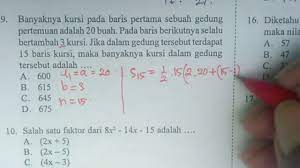 9. Banyaknya kursi pada baris pertama sebuah gedung
pertemuan adalah 20 buah. Pada baris berikutnya selalu
bertambah 3 kursi. Jika dalam gedung tersebut terdapat
15 baris kursi, maka banyaknya kursi dalam gedung
tersebut adalah ....
A. 600
B. 615
C. 645
D. 675
u₁ = a = 20
b = 3
n = 15
S₁₅ = 1/2 . 15 (2 . 20 + (15 - 1)
10. Salah satu faktor dari 8x² - 14x - 15 adalah ....
A. (2x + 5)
B. (2x - 5)
C. (4x - 3)
16. Diketahui
maka nila
A. 57
B. 47
C.
17